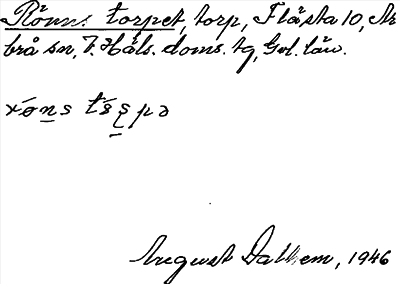 Rönns torpet, torp, Flästa 10, Ar
brå sn, V. Häls. doms. tg, Gvl. län.
August Dalhem, 1946